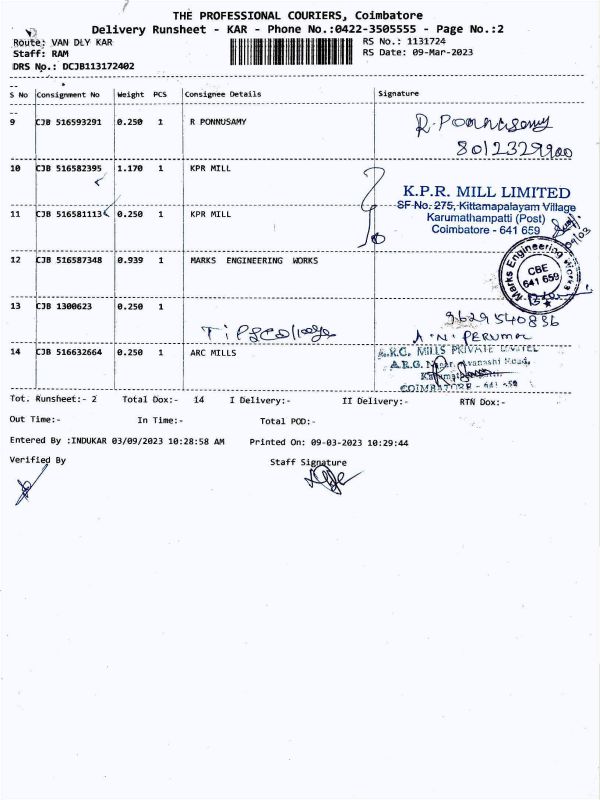 THE PROFESSIONAL COURIERS, Coimbatore
Delivery Runsheet - KAR - Phone No.:0422-3505555 - Page No.:2
Route: VAN DLY KAR RS No.: 1131724
Staff: RAM RS Date: 09-Mar-2023
DRS No.: DCJB113172402
S No Consignment No Weight PCS Consignee Details Signature
9 CJB 516593291 0.250 1 R PONNUSAMY R. Ponnusamy
8012329900
10 CJB 516582395 1.170 1 KPR MILL
K.P.R. MILL LIMITED
SF No. 275, Kittamapalayam Village
11 CJB 516581113 0.250 1 KPR MILL Karumathampatti (Post)
Coimbatore - 641 659
09/03
12 CJB 516587348 0.939 1 MARKS ENGINEERING WORKS
Marks Engineering Works
CBE
641 659
13 CJB 1300623 0.250 1
9629540836
A.N. PERUMAL
14 CJB 516632664 0.250 1 ARC MILLS
A.R.C. MILLS PRIVATE LIMITED
A.R.G. Nagar, Avanashi Road,
COIMBATORE - 641 659
Tot. Runsheet:- 2 Total Dox:- 14 I Delivery:- II Delivery:- RTN Dox:-
Out Time:- In Time:- Total POD:-
Entered By :INDUKAR 03/09/2023 10:28:58 AM Printed On: 09-03-2023 10:29:44
Verified By Staff Signature